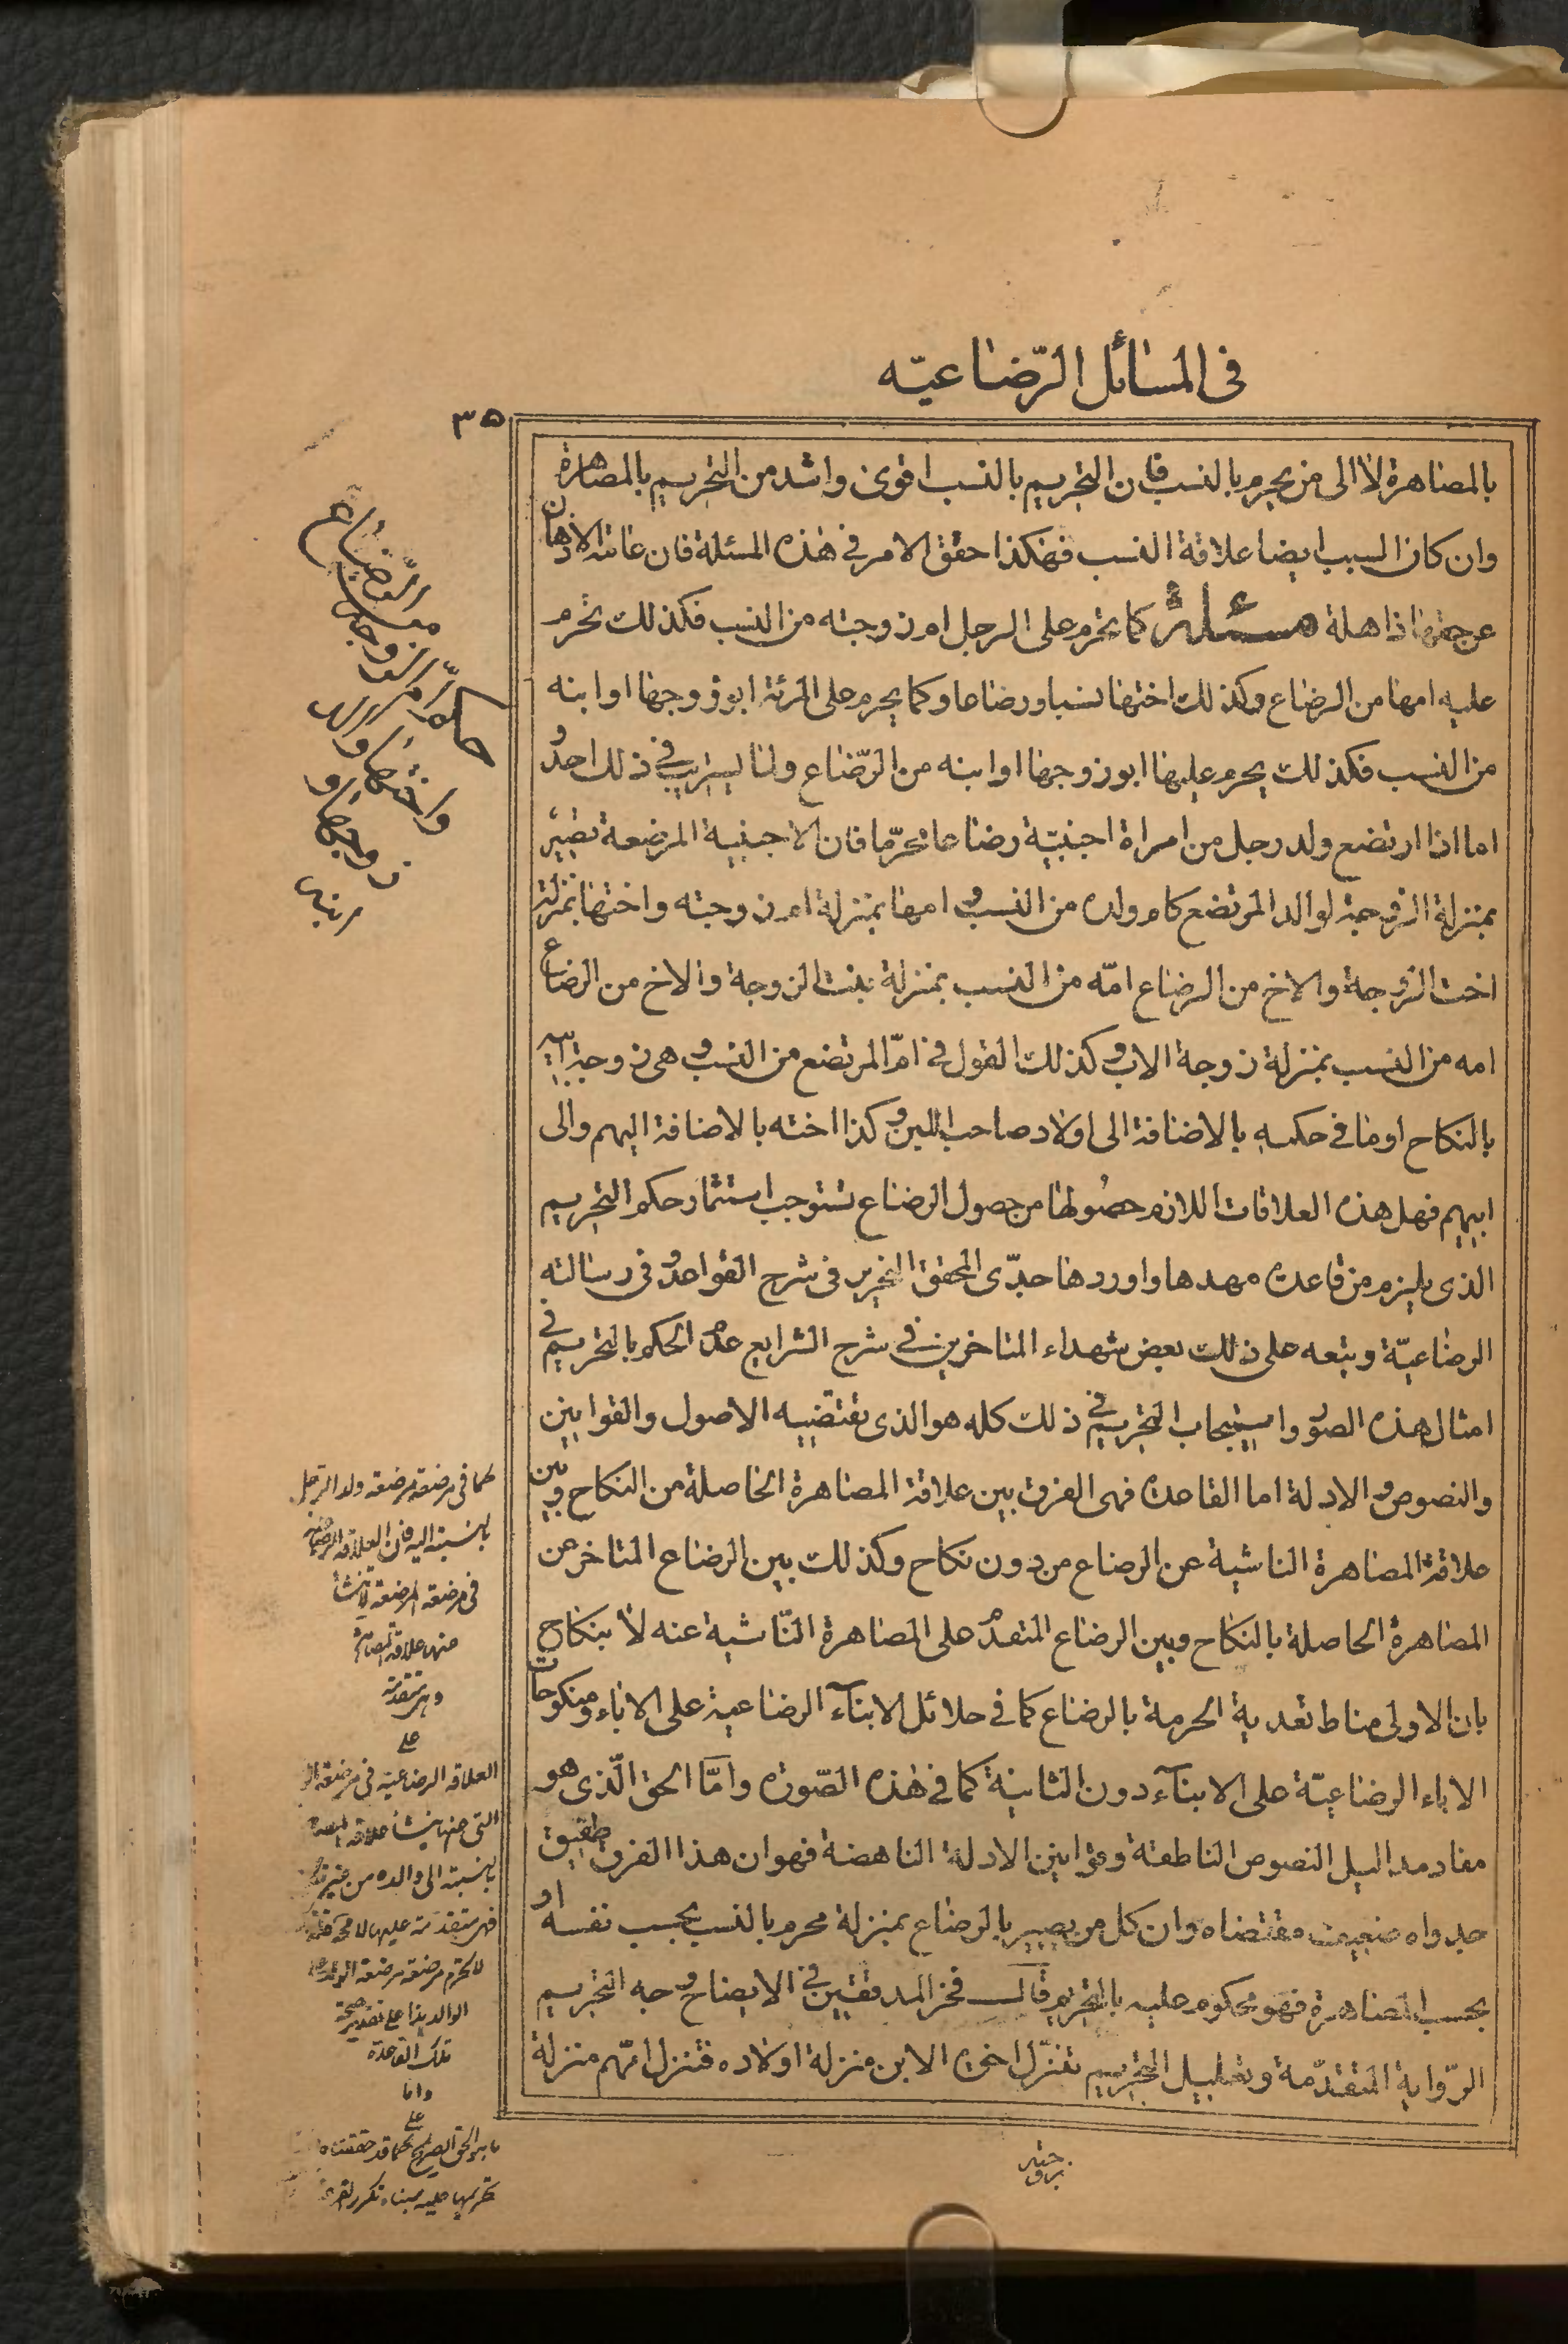 فى المسائل الرّضاعيّه
٣٥
بالمصاهرة لا الى من يحرم بالنسب فان التحريم بالنسب اقوى واشد من التحريم بالمصاهرة
وان كان السبب ايضا علاقة النسب فهكذا حقق الامر فى هذه المسئلة فان عامة الاذهان
عن جهتها ذاهلة مسئلة كما يحرم على الرجل ام زوجته من النسب فكذلك تحرم
عليه امها من الرضاع وكذلك اختها نسبا ورضاعا وكما يحرم على المرئة ابو زوجها او ابنه
من النسب فكذلك يحرم عليها ابو زوجها او ابنه من الرّضاع ولنا ليسريب فى ذلك احد و
اما اذا ارتضع ولد رجل من امراة اجنبيّة رضاعا محرّما فان الاجنبية المرضعة تصير
بمنزلة الزوجة لوالد المرتضع كام ولده من النسب و امها بمنزلة ام زوجته واختها بمنزلة
اخت الزوجة والاخ من الرضاع امّه من النسب بمنزلة بنت الزوجة والاخ من الرضاع
امه من النسب بمنزلة زوجة الاب و كذلك القول فى امّ المرتضع من النسب و هى زوجة ابيه
بالنكاح او ما فى حكمه بالاضافة الى اولاد صاحب اللبن و كذا اخته بالاضافة اليهم والى
ابيهم فهل هذه العلاقات اللازم حصولها من حصول الرضاع تستوجب استثمار حكم التحريم
الذى يلزم من قاعدة مهدها واوردها جدّى المحقق النحرير فى شرح القواعد و فى رسالته
الرضاعيّة وتبعه على ذلك بعض شهداء المتاخرين فى شرح الشرايع عدم الحكم بالتحريم فى
امثال هذه الصور واستيجاب التحريم فى ذلك كله هو الذى تقتضيه الاصول والقوانين
والنصوص و الادلة اما القاعدة فهى الفرق بين علاقة المصاهرة الحاصلة من النكاح وبين
علاقة المصاهرة الناشية عن الرضاع من دون نكاح وكذلك بين الرضاع المتاخر عن
المصاهرة الحاصلة بالنكاح وبين الرضاع المتقدم على المصاهرة النّاشية عنه لا بنكاح
بان الاولى مناط تعدية الحرمة بالرضاع كما فى حلائل الابنآء الرضاعية على الاباء ومنكوحات
الاباء الرضاعيّة على الابنآء دون الثانية كما فى هذه الصّورة وامّا الحق الّذى هو
مفاد مداليل النصوص الناطقة وقوانين الادلة الناهضة فهو ان هذا الفرق طفيق
جدواه ضعيف مقتضاه وان كل من يصير بالرضاع بمنزلة محرم بالنسب بحسب نفسه او
بحسب المصاهرة فهو محكوم عليه بالتحريم قال فخر المدققين فى الايضاح وجه التحريم
الرّواية المتقدّمة وتعليل التحريم تنزّل اخوة الابن منزلة اولاده فتنزل امّهم منزلة
زوجته
حكم امّ الزوجة من الرّضاع
واختها وابى
زوجها و
ابنه
كما فى مرضعة مرضعة ولد الرجل
بالنسبة اليه فان العلاقة الرضاعية
فى مرضعة المرضعة لا تنشأ
منها علاقة المصاهرة
وهى متقدمة
على
العلاقة الرضاعية فى مرضعة
التى منها ينشأ علاقة
بالنسبة الى والده من غير
فهى متقدمة عليها لا محة
لا تحرم مرضعة مرضعة الولد على
الوالد بناء على تقدير صحة
تلك القاعدة
واما
على
ما هو الحق الصريح كما قد حققناه
تحريمها عليه